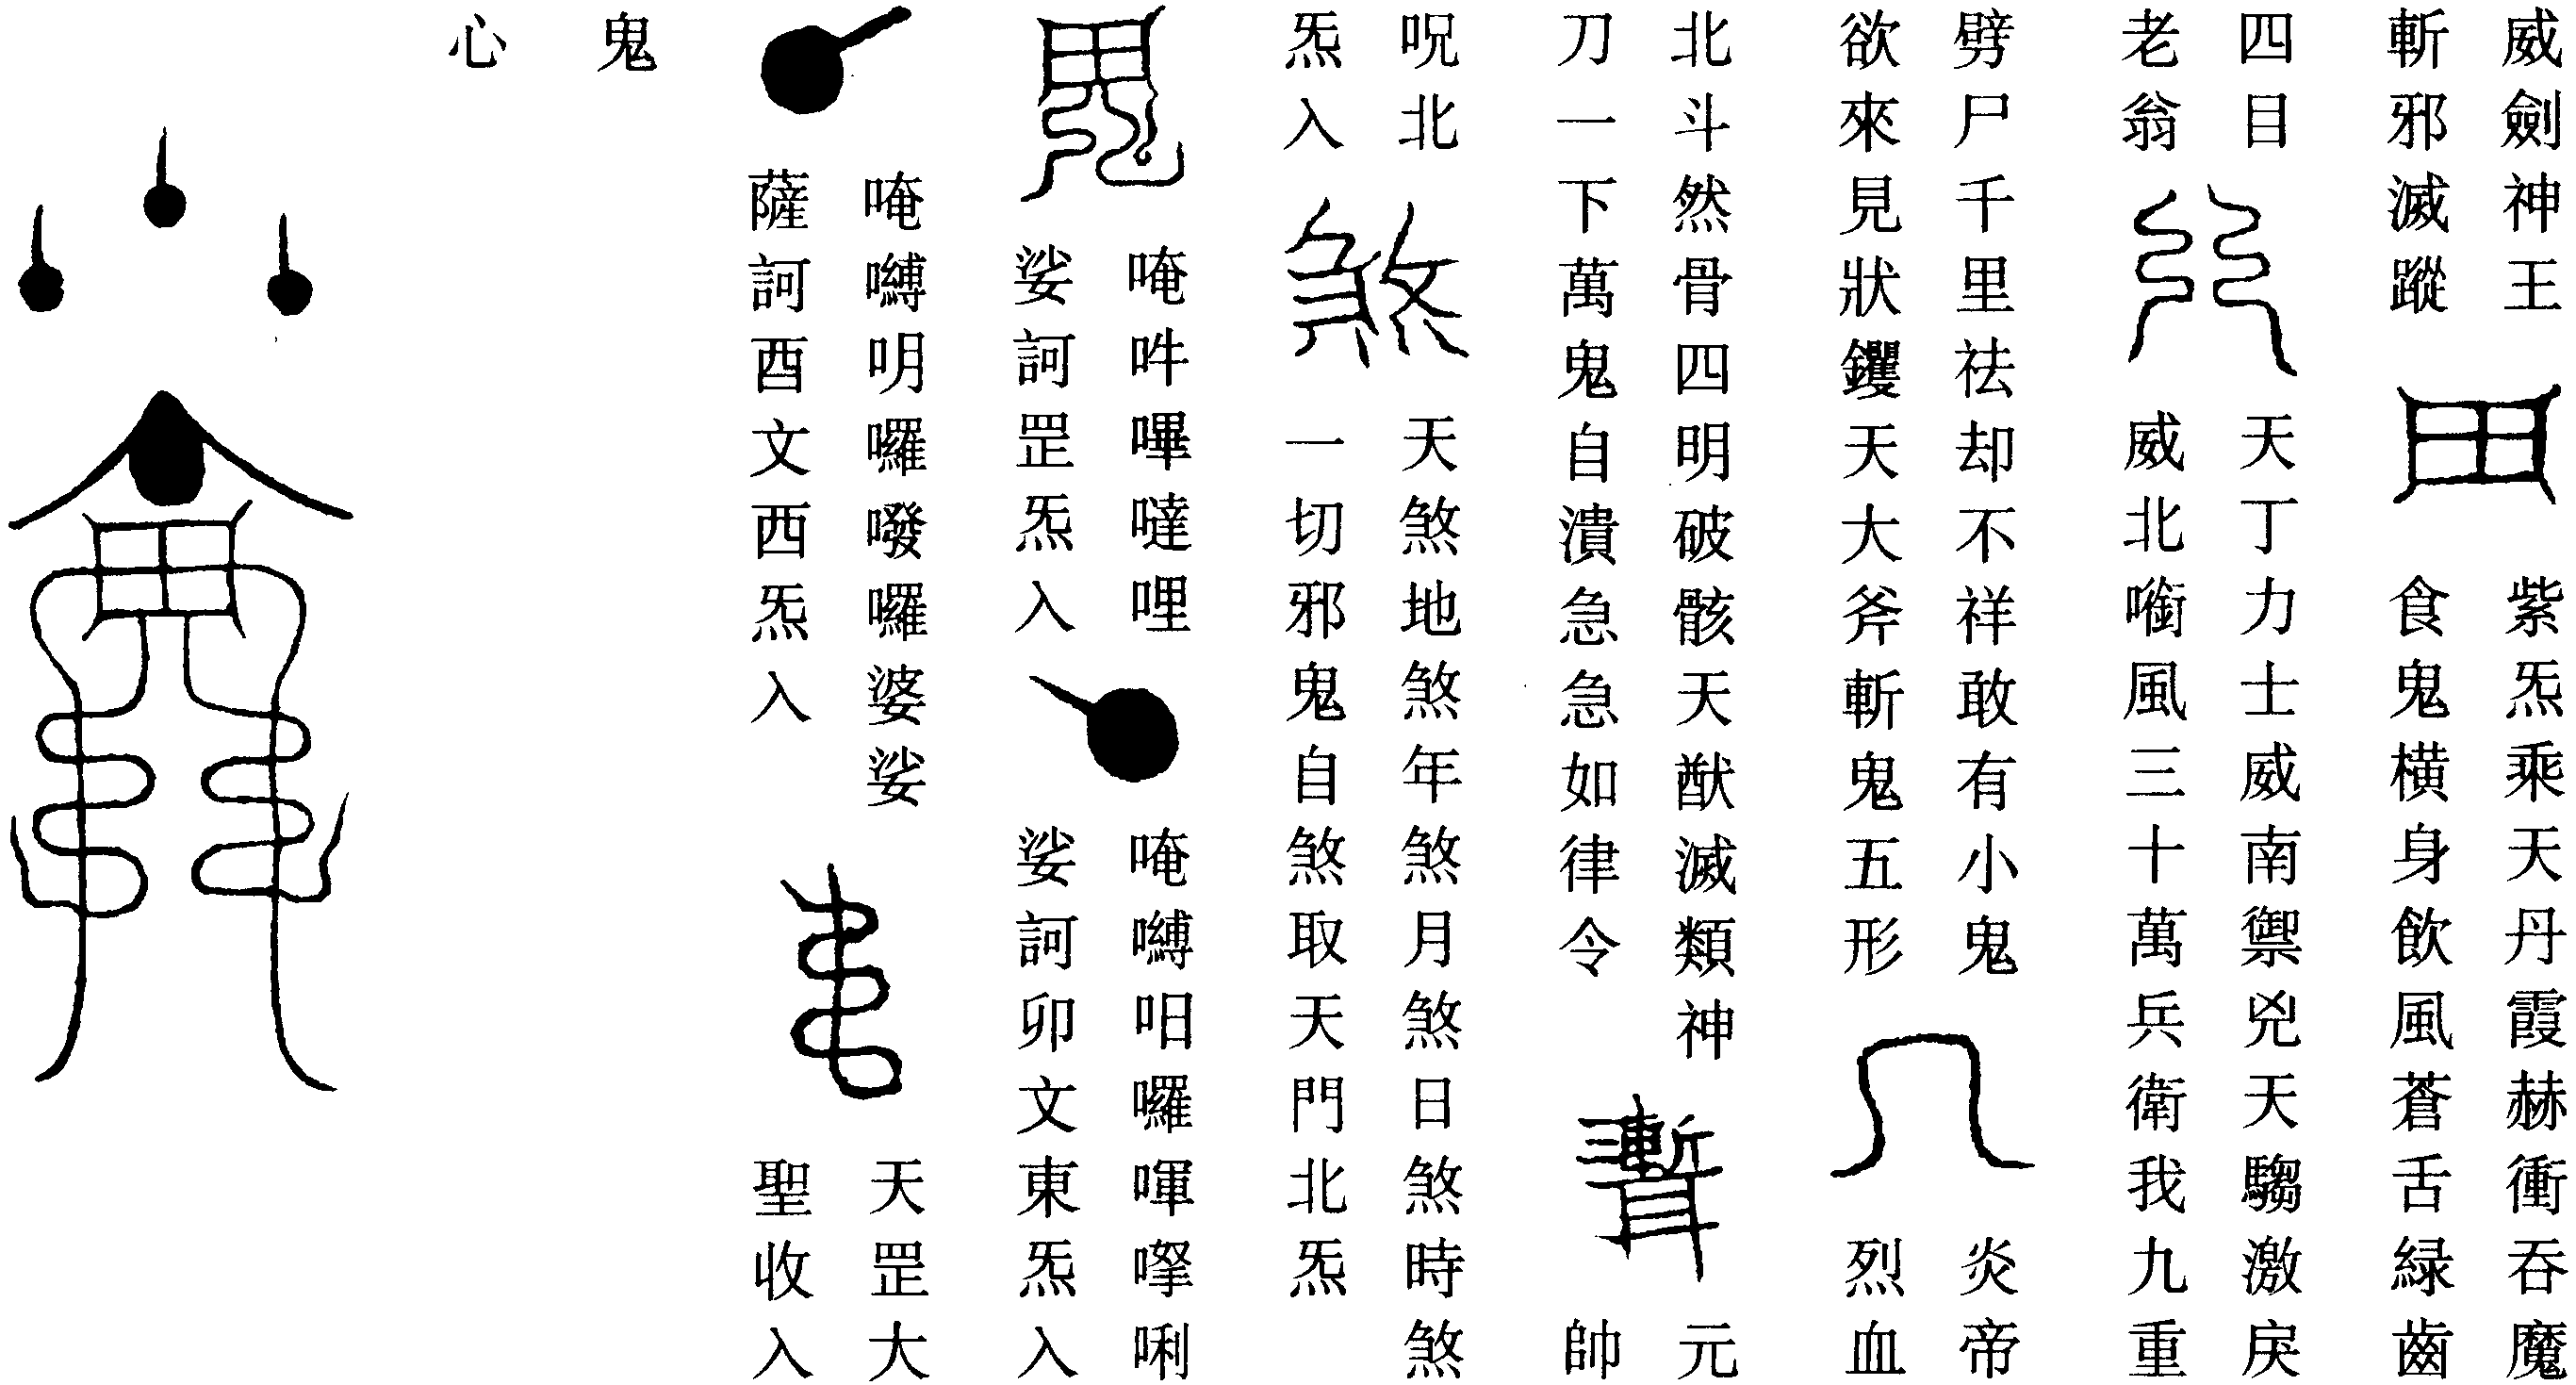 威劍神王
斬邪滅蹤
紫炁乘天丹霞赫衝吞魔
食鬼橫身飲風蒼舌緑齒
四目
老翁
天丁力士威南禦兇天騶激戾
威北㘅風三十萬兵衛我九重
劈尸千里祛却不祥敢有小鬼
欲來見狀钁天大斧斬鬼五形
炎帝
烈血
北斗然骨四明破骸天猷滅類神
刀一下萬鬼自潰急急如律令
元
帥
呪北
炁入
天煞地煞年煞月煞日煞時煞
一切邪鬼自煞取天門北炁
唵吽嗶噠哩
娑訶罡炁入
唵嚩呬囉㗲㘄唎
娑訶卯文東炁入
唵嚩明囉囉婆娑
薩訶酉文西炁入
天罡大
聖收入
鬼
心